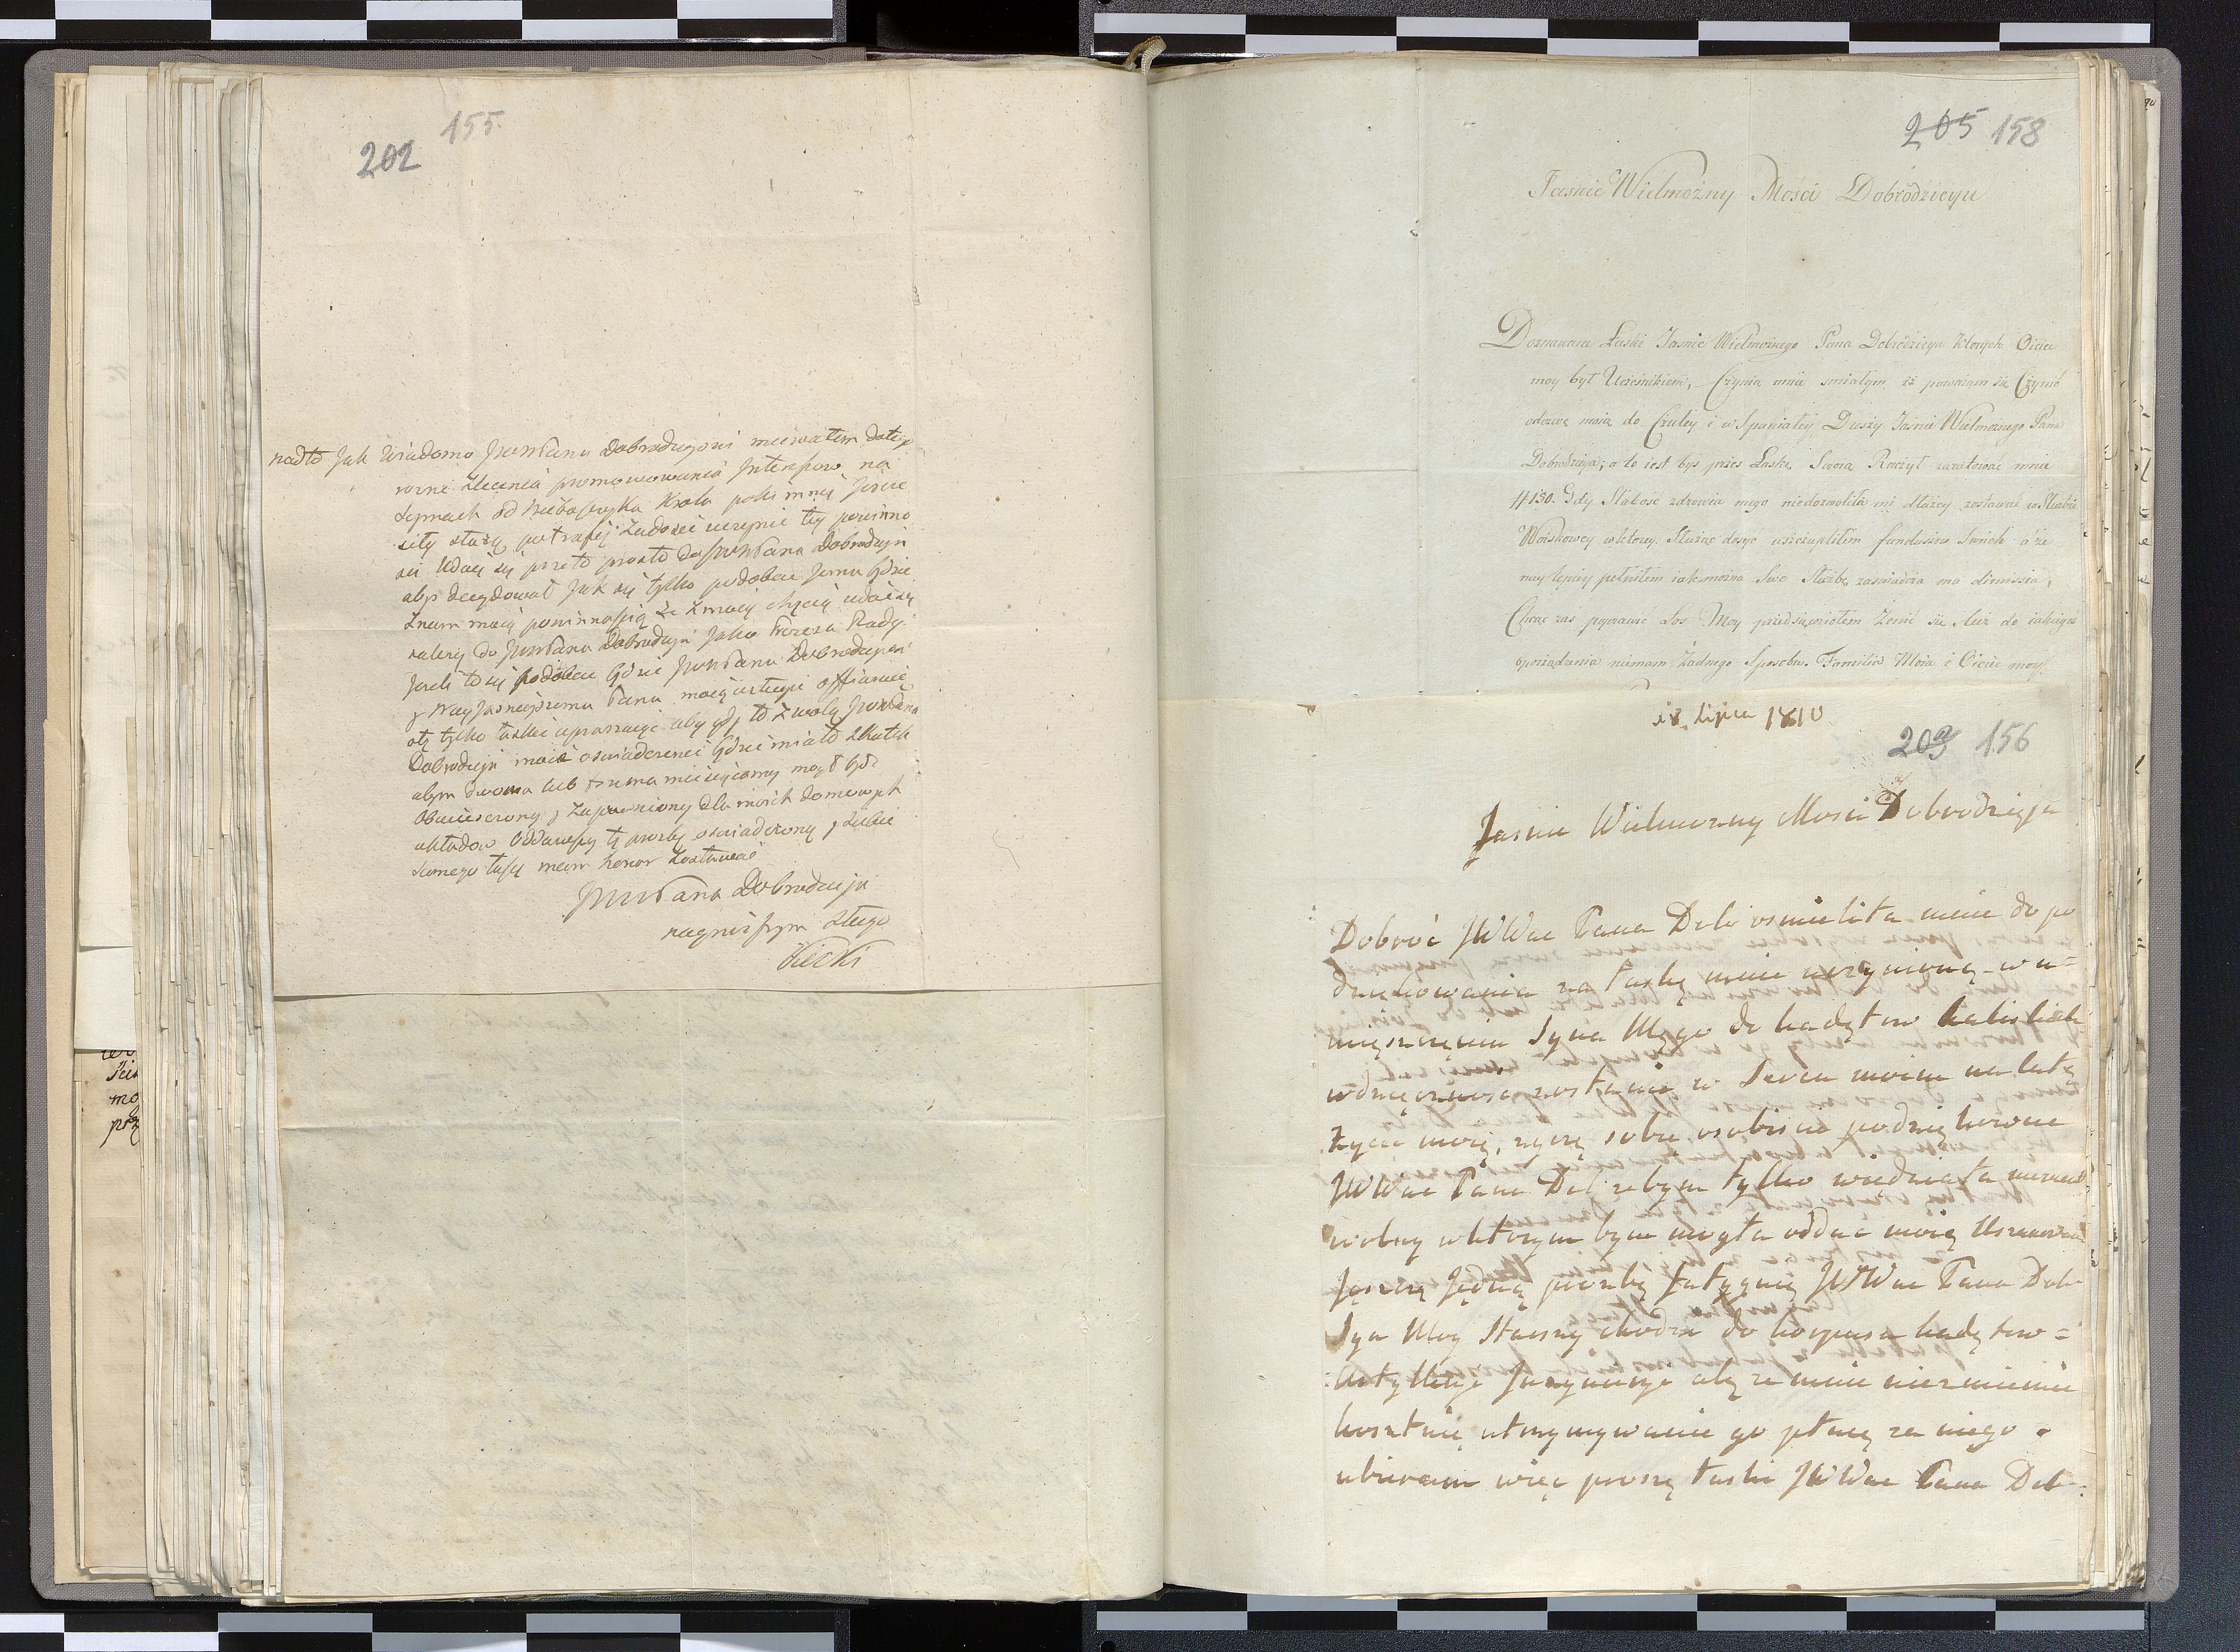 155
202
nadto Jak Wiadomo JWWPanu Dobrodziejowi miewałem dotego
rożne zlecenia promowowania Interessow na
Seymach od Nieboszczyka Krola poki innej jescze
siły służą potrafię Zadosić uczynić tey powinno
sci Udaię się przeto prosto do JWWPana Dobrodzieja
abyś decydował Jak się tylko podobac Jemu będzie
Znam moię powinnością że z moią chęcią udać się
należy do JWWPana Dobrodzieja Jako Prezesa Rady
Jesli to się podobac będzie JWWPanu Dobrodziejowi
y Nayjasnieyszemu Panu moię usługę offiaruię
otę tylko łaskę upraszaiąc aby gdy to z wolą JWWPana
Dobrodzieja moie oswiadczenie będzie miało skutek
abym dwoma lub trzema miesięcamy mogł być
Obwieszczony y zapewniony dla moich domowych
układow Oddawszy tę prozbę oswiadczoną y Lubie
samego łasce mam honor zostawać
JWWPana Dobrodzieja
nayniższym sługą
Kicki
205 158
Jaśnie Wielmożny Mości Dobrodzieyu
Doznawane Łaski Jaśnie Wielmożnego Pana Dobrodzieya których Ociec
moy był Ucześnikiem, Czynią mnie smiałym iż poważam się Czynić
odezwę moią do Czułey i wSpaniałey Duszy Jaśnie Wielmożnego Pana
Dobrodzieya; a to iest byś przez Łaskę Swoią Raczył zaratować mnie
# 150. Gdy Słabość zdrowia mego niedozwoliła mi dłużey zostawać w Służbie
Woiskowey wktorey Służąc dosyć uszczupliłem funduszow Swoich a że
naylepiey pełniłem iak można Swe Służbę zaswiadcza ma dimissia,
Chcąc zaś poprawić Los Moy przedsięwziołem Żenić się lecz do iakiegoś
oporządzenia niemam Żadnego Sposobu. Familia Moia i Ociec moy
18 Lipca 1810
203 156
Jasnie Wielmozny Mosci Dobrodzieju
Dobroć JWWae Pana Dob: osmieliła mnie do po
dziękowania za łaskę mnie uczynioną w u=
mięszczeniu Syna Mego do kadętow kaliskich
wdzięcznosc zostanie w Sercu moim na całę
życie moię, życzę sobie osobiscie podziękować
JWWae Panu Dob: zebym tylko wiedziała moment
wolny wktorym bym mogła oddać moię Uszanowanie
Jęszczę Jędną prozbę fatyguię JWWae Pana Dob:
Syn Moy Starszy chodzi do korpusu kadętow=
Artylleryi Inzynieryi alę ze mnie niezmiernie
kosztuię utrzymywanie go płacę za niego
ubieram więc proszę łaski JWWae Pana Dob: